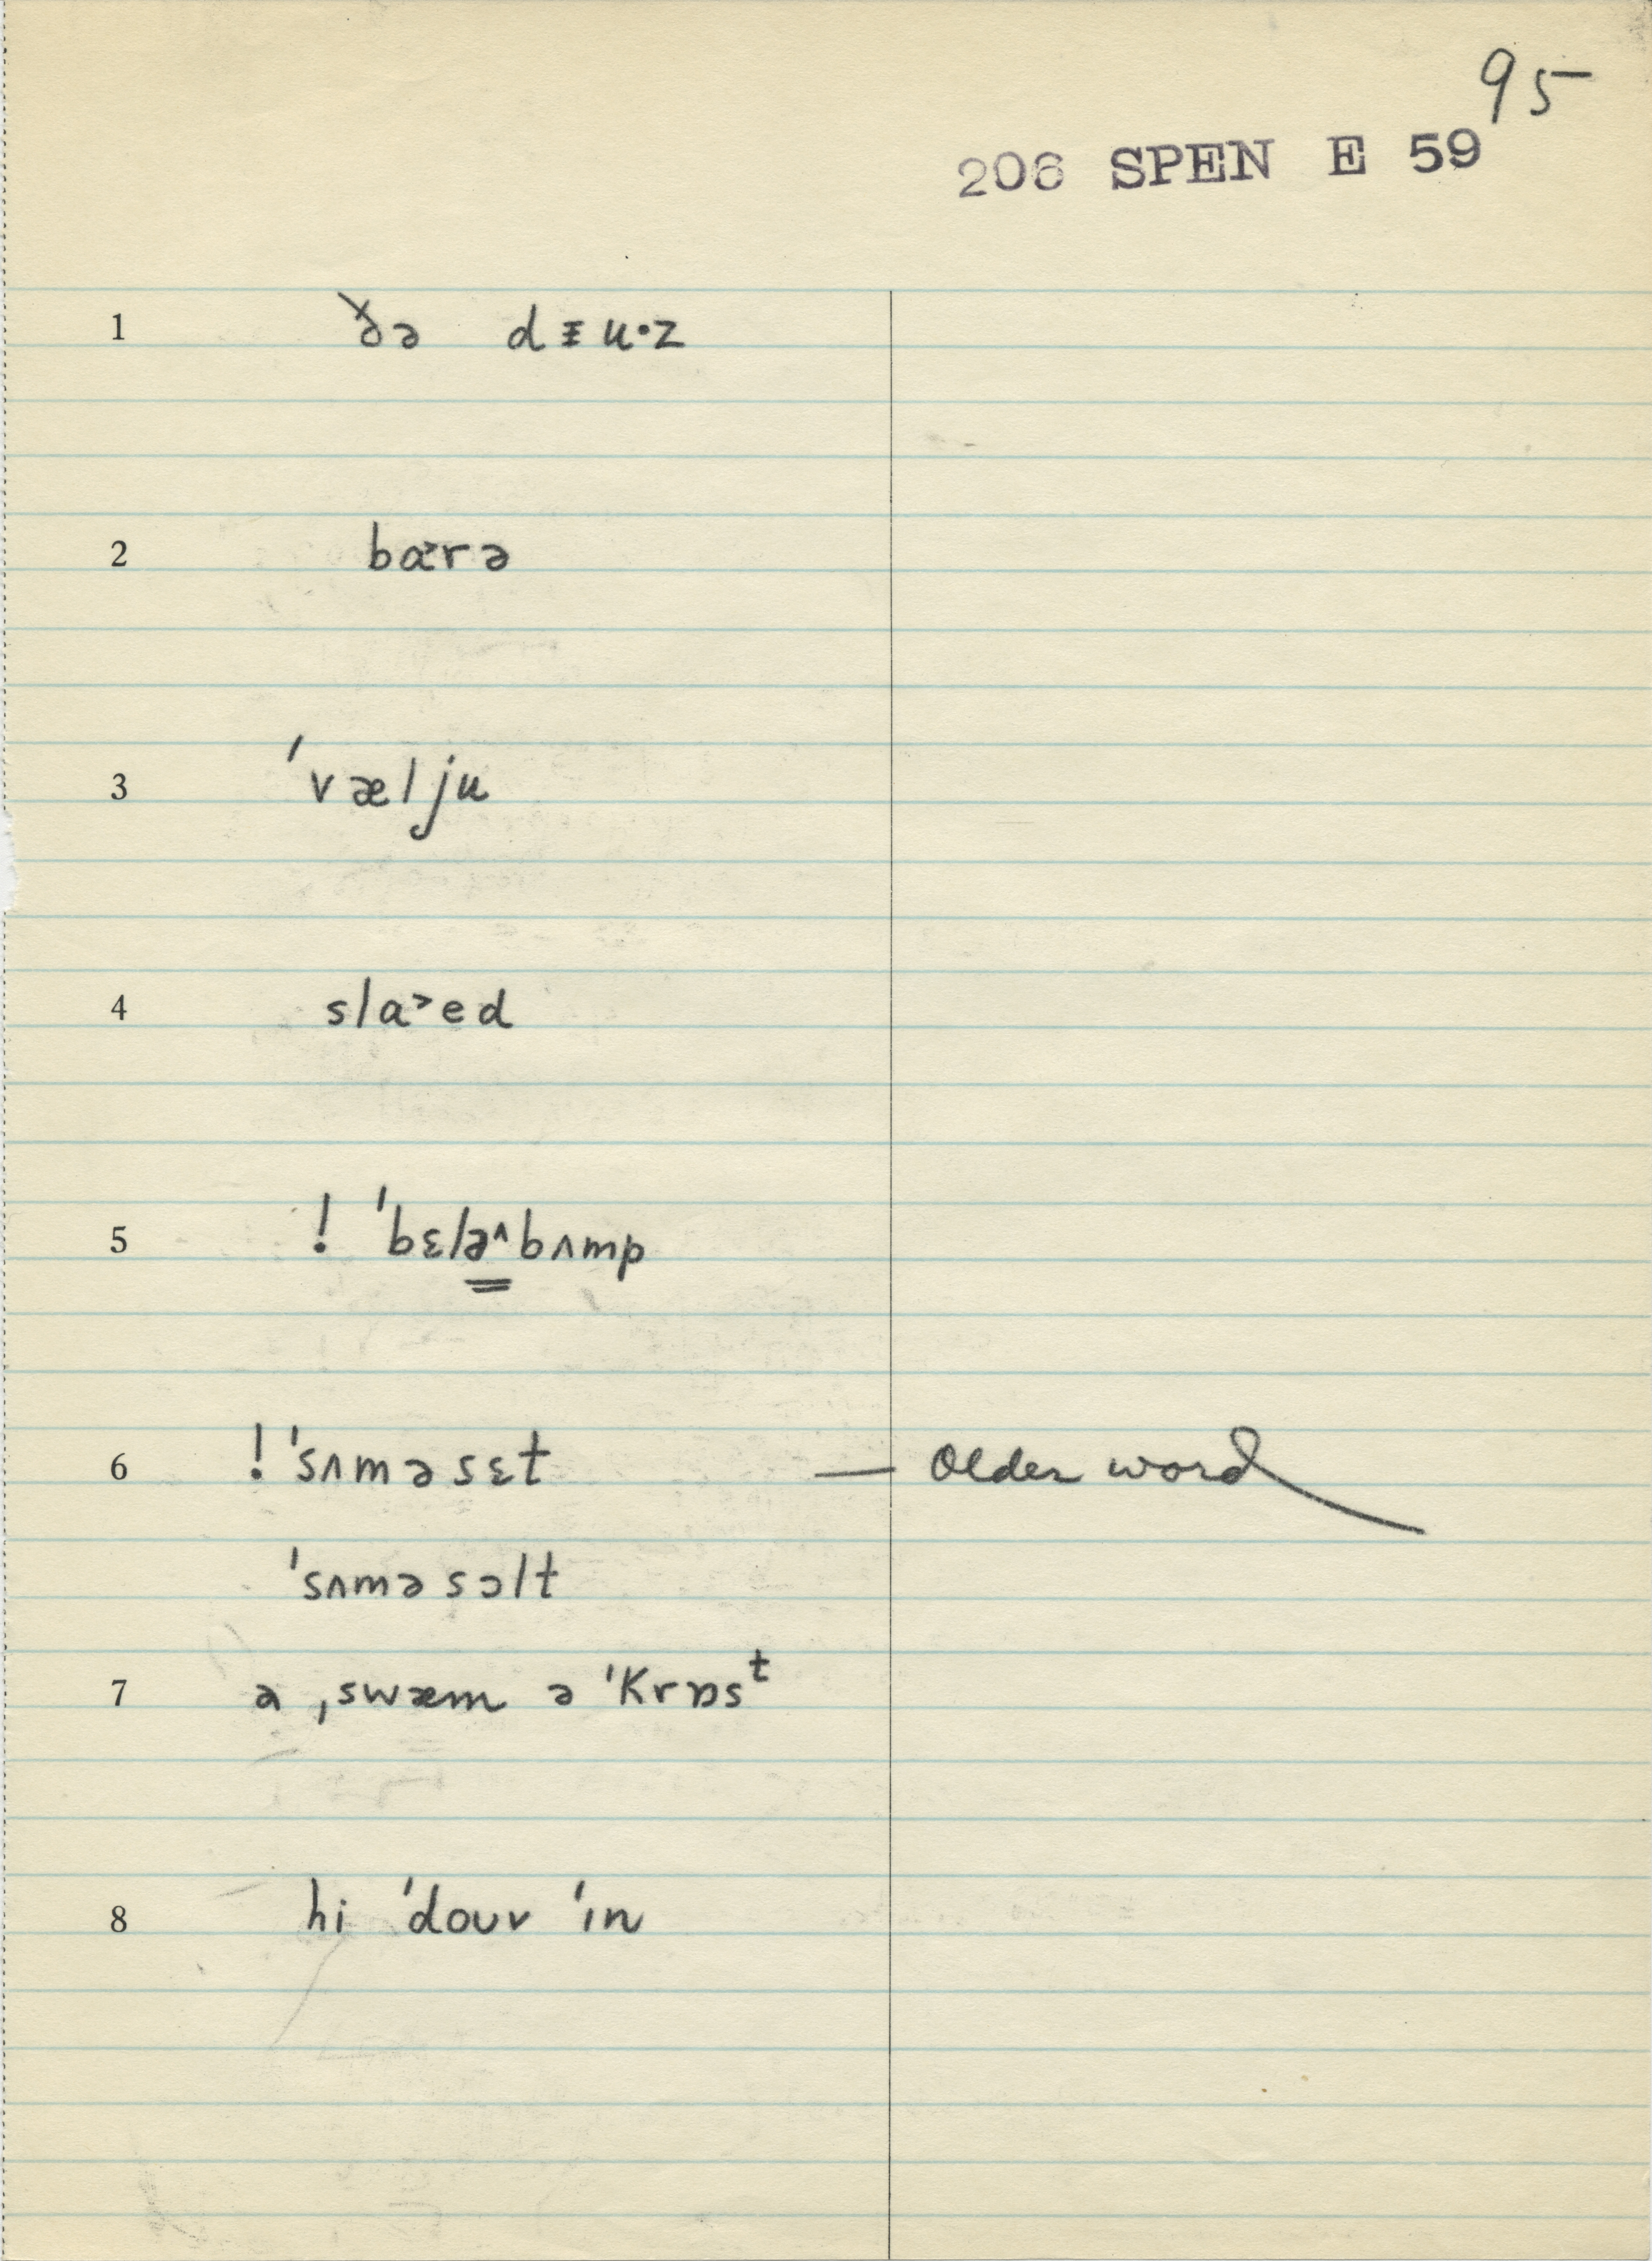 95
206 SPEN E 59
1 ðə dᵻu·z
2 ba˃rə
3 ˈvælju
4 sla˃ed
5 ! ˈbɛlə̳^bʌmp
6 ! ˈsʌməsɛt — older word
ˈsʌməsɔlt
7 ə ˌswæm ə ˈkrɒsᵗ
8 hi ˈdouv ˈɪn